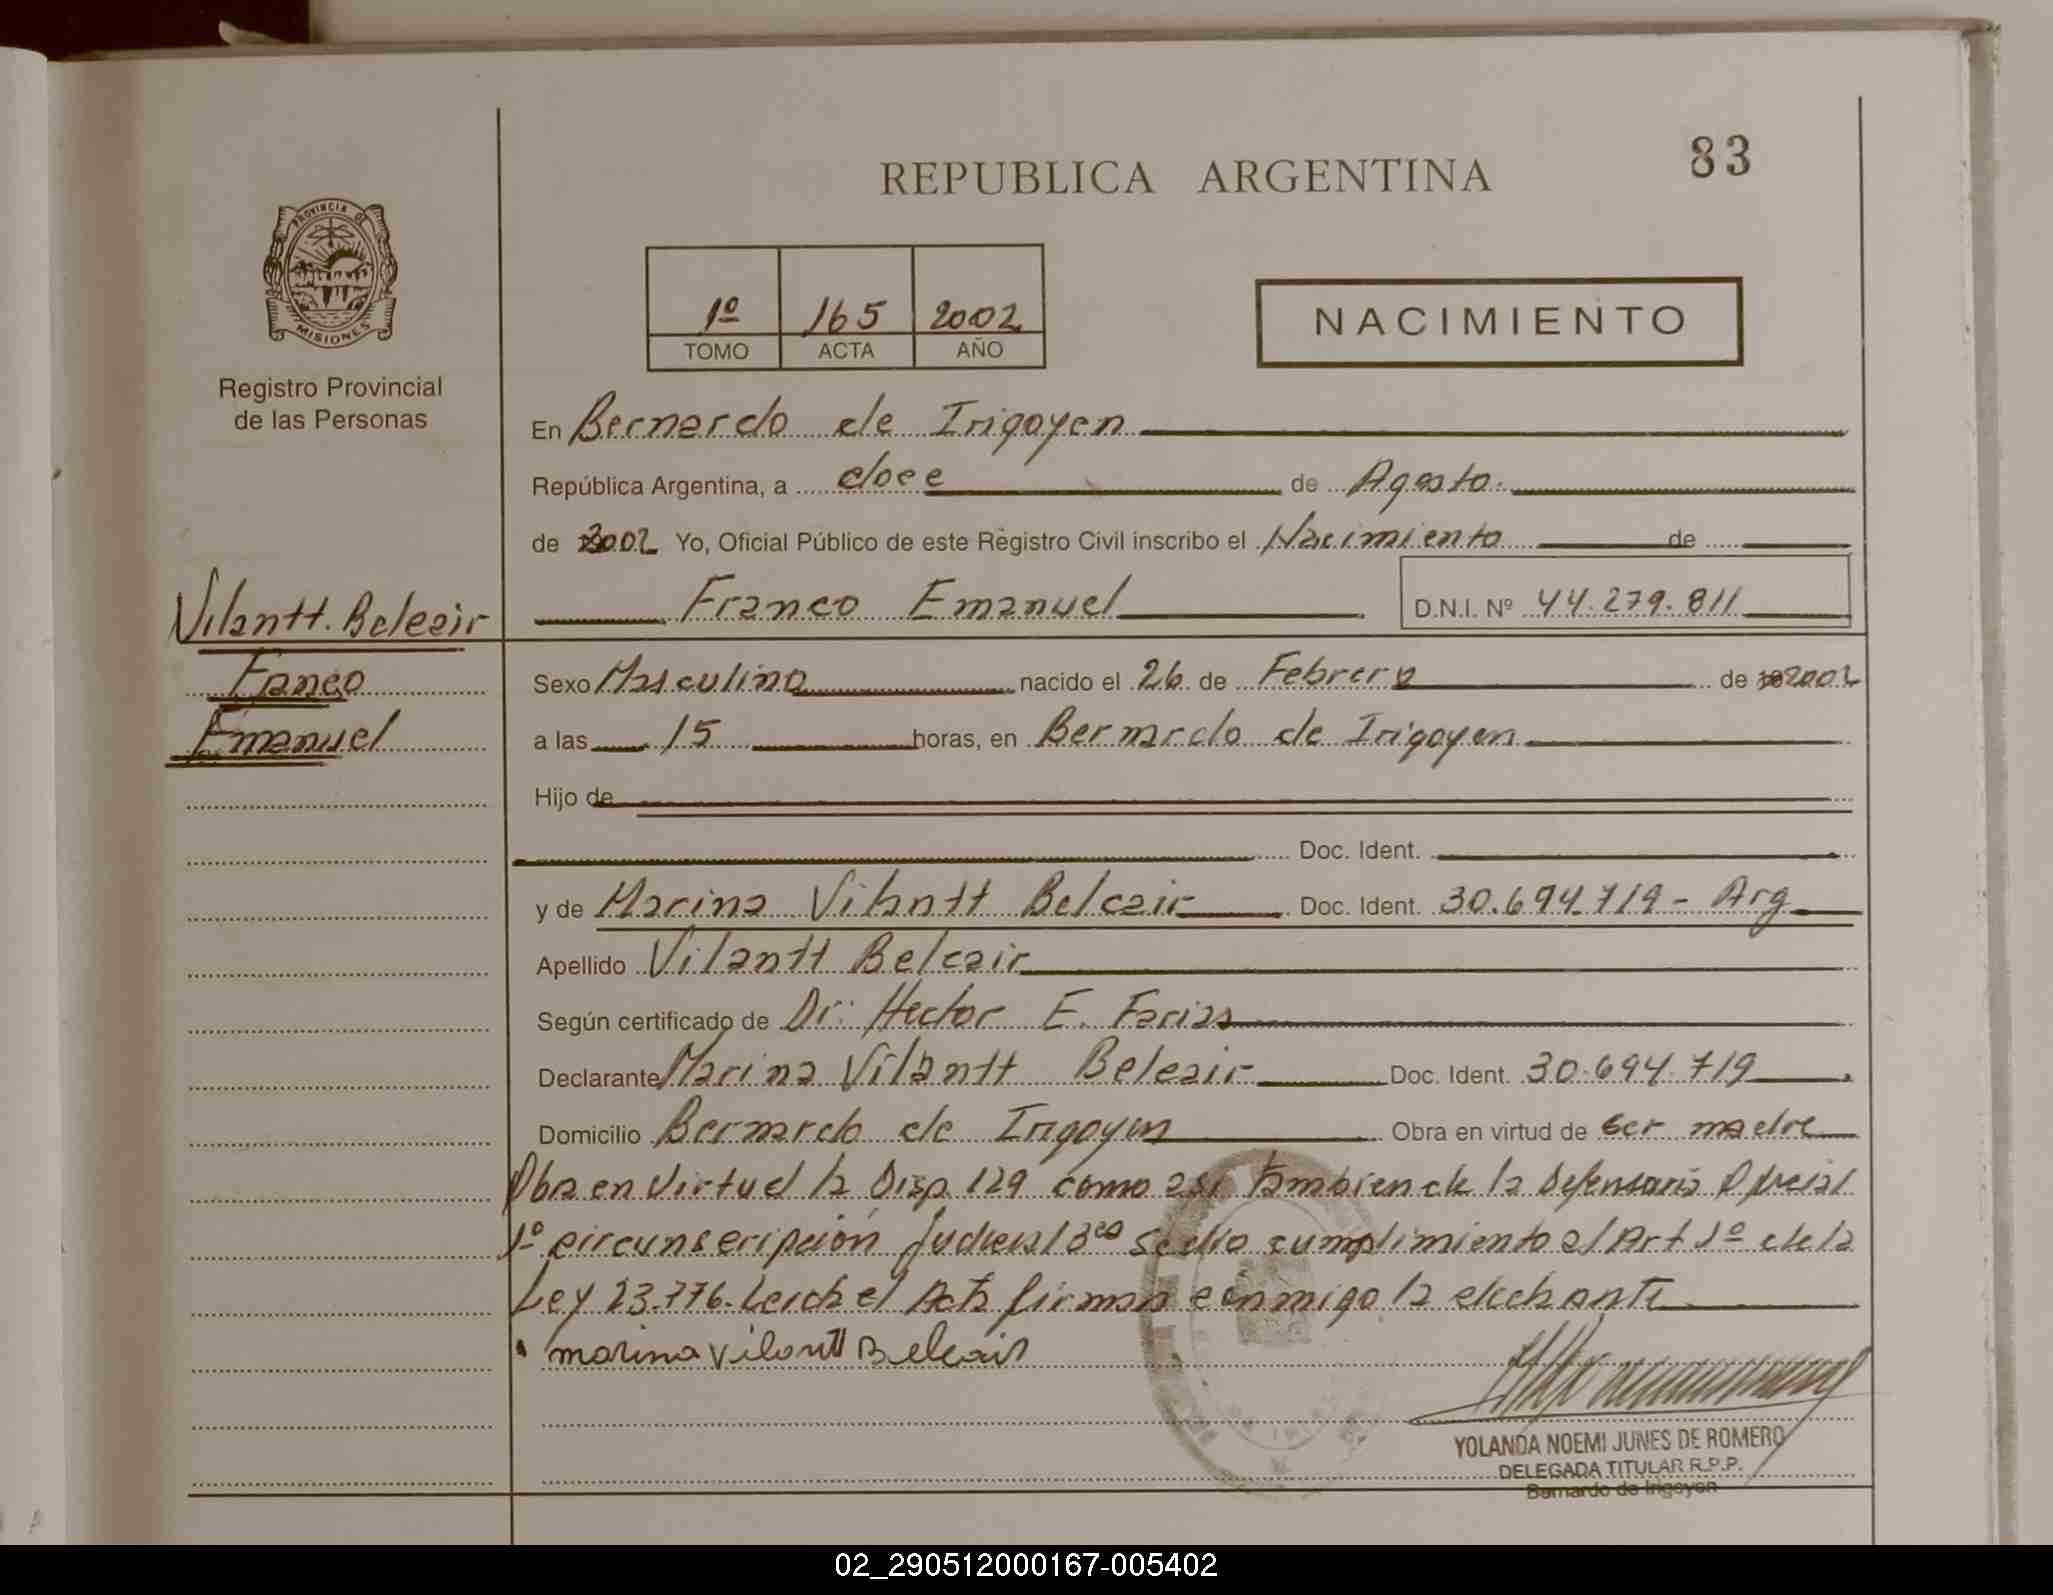 83
REPUBLICA ARGENTINA
PROVINCIA DE
MISIONES
Registro Provincial
de las Personas
1º 165 2002
TOMO ACTA AÑO
NACIMIENTO
En Bernardo de Irigoyen
República Argentina, a doce de Agosto.
de 2002 Yo, Oficial Público de este Registro Civil inscribo el Nacimiento de
Franco Emanuel D.N.I. Nº 44.279.811
Vilantt Belcair
Franco
Emanuel
Sexo Masculino nacido el 26 de Febrero de 2002
a las 15 horas, en Bernardo de Irigoyen
Hijo de
Doc. Ident.
y de Marina Vilantt Belcair Doc. Ident. 30.694.719 - Arg
Apellido Vilantt Belcair
Según certificado de Dr: Hector E. Farias
Declarante Marina Vilantt Belcair Doc. Ident. 30.694.719
Domicilio Bernardo de Irigoyen Obra en virtud de ser madre
Obra en virtud la Disp 129 como asi tambien de la Defensoria Oficial
1º circunscripción Judicial se dio cumplimiento al Art 1º de la
Ley 23.776. Leida el Acta firman conmigo la
marina Vilantt Belcair
YOLANDA NOEMI JUNES DE ROMERO
DELEGADA TITULAR R.P.P.
Bernardo de Irigoyen
02_290512000167-005402